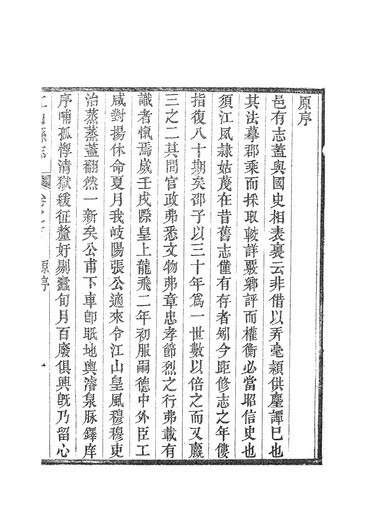 原序
邑有志蓋與國史相表裏云非借以弄毫穎供麈譚已也
其法摹郡乘而採取較詳覈鄉評而權衡必當昭信史也
須江風隸姑蔑在昔舊志僅有存者矧今距修志之年僂
指復八十期矣邵子以三十年爲一世數以倍之而又嬴
三之二其間官政弗悉文物弗章忠孝節烈之行弗載有
識者愾焉歲壬戌際皇上龍飛二年初服嗣德中外臣工
咸對揚休命夏月我岐陽張公適來令江山皇風穆穆吏
治蒸蒸蓋翻然一新矣公甫下車卽眂地輿濬泉脉鐸庠
序哺孤惸清獄緩征釐奸剔蠧旬月百廢俱興旣乃留心
原序